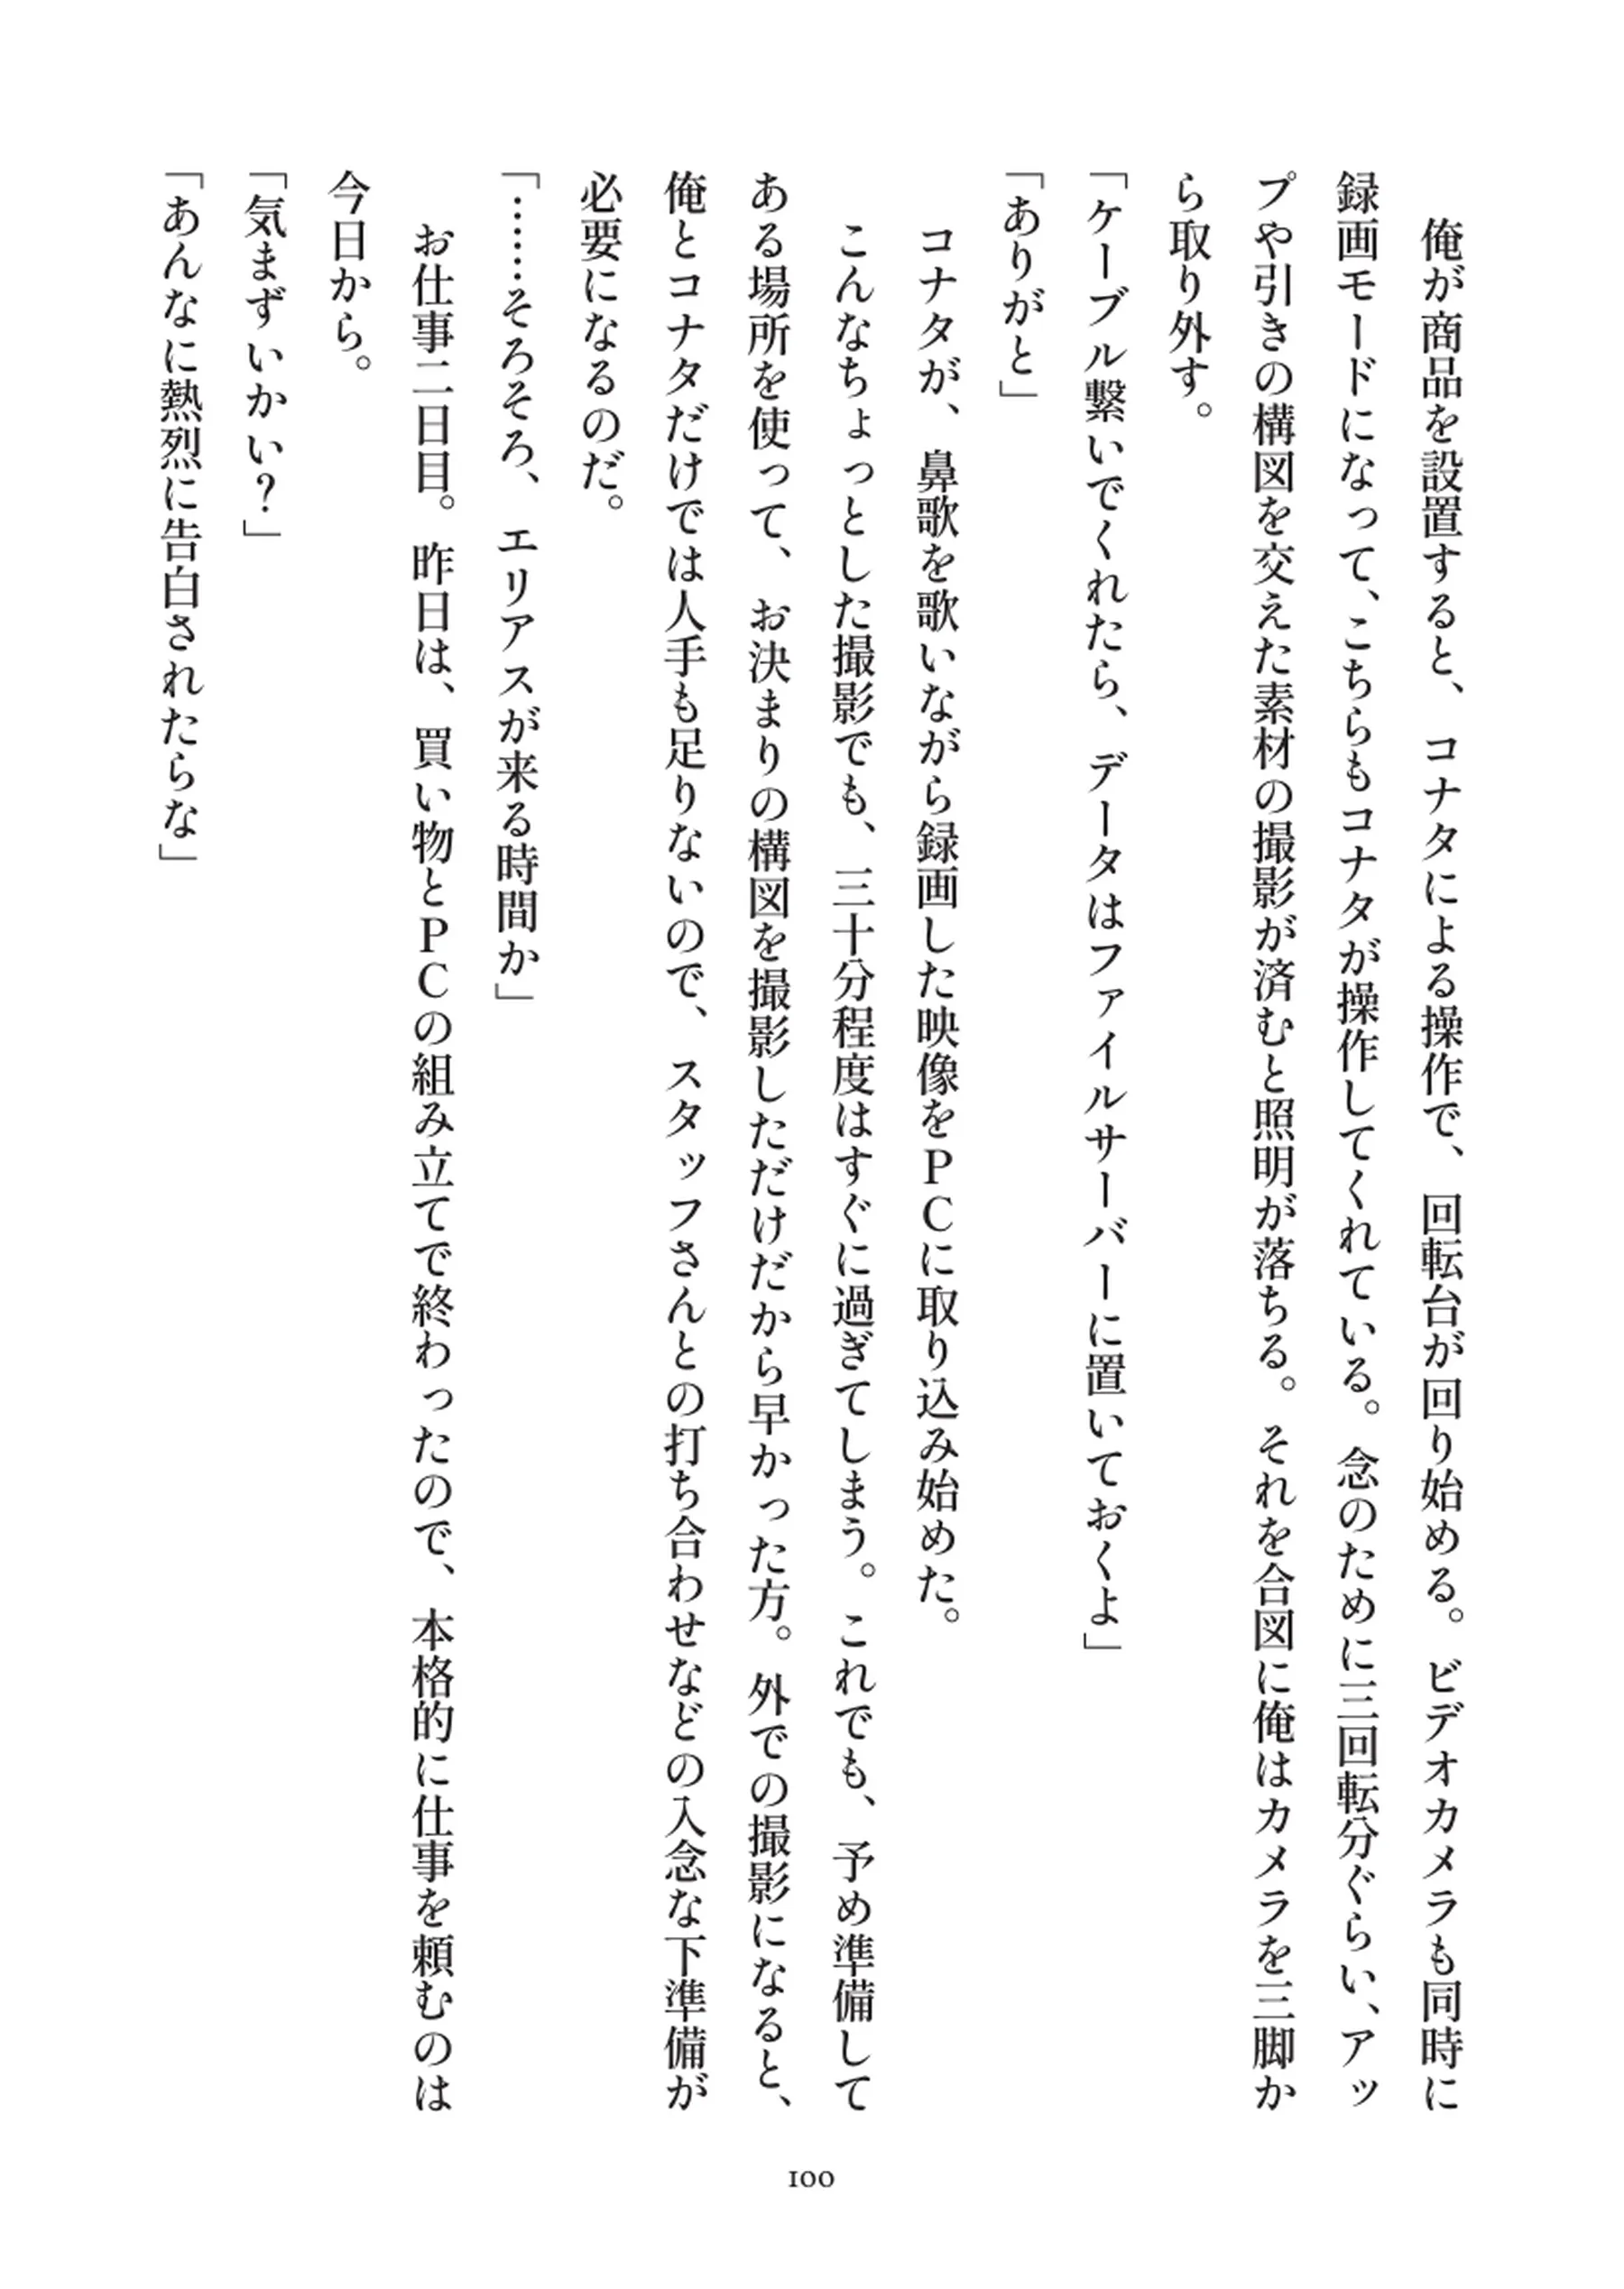 俺が商品を設置すると、コナタによる操作で、回転台が回り始める。ビデオカメラも同時に
録画モードになって、こちらもコナタが操作してくれている。念のために三回転分ぐらい、アッ
プや引きの構図を交えた素材の撮影が済むと照明が落ちる。それを合図に俺はカメラを三脚か
ら取り外す。
「ケーブル繋いでくれたら、データはファイルサーバーに置いておくよ」
「ありがと」
　コナタが、鼻歌を歌いながら録画した映像をＰＣに取り込み始めた。
　こんなちょっとした撮影でも、三十分程度はすぐに過ぎてしまう。これでも、予め準備して
ある場所を使って、お決まりの構図を撮影しただけだから早かった方。外での撮影になると、
俺とコナタだけでは人手も足りないので、スタッフさんとの打ち合わせなどの入念な下準備が
必要になるのだ。
「……そろそろ、エリアスが来る時間か」
　お仕事二日目。昨日は、買い物とＰＣの組み立てで終わったので、本格的に仕事を頼むのは
今日から。
「気まずいかい？」
「あんなに熱烈に告白されたらな」
100